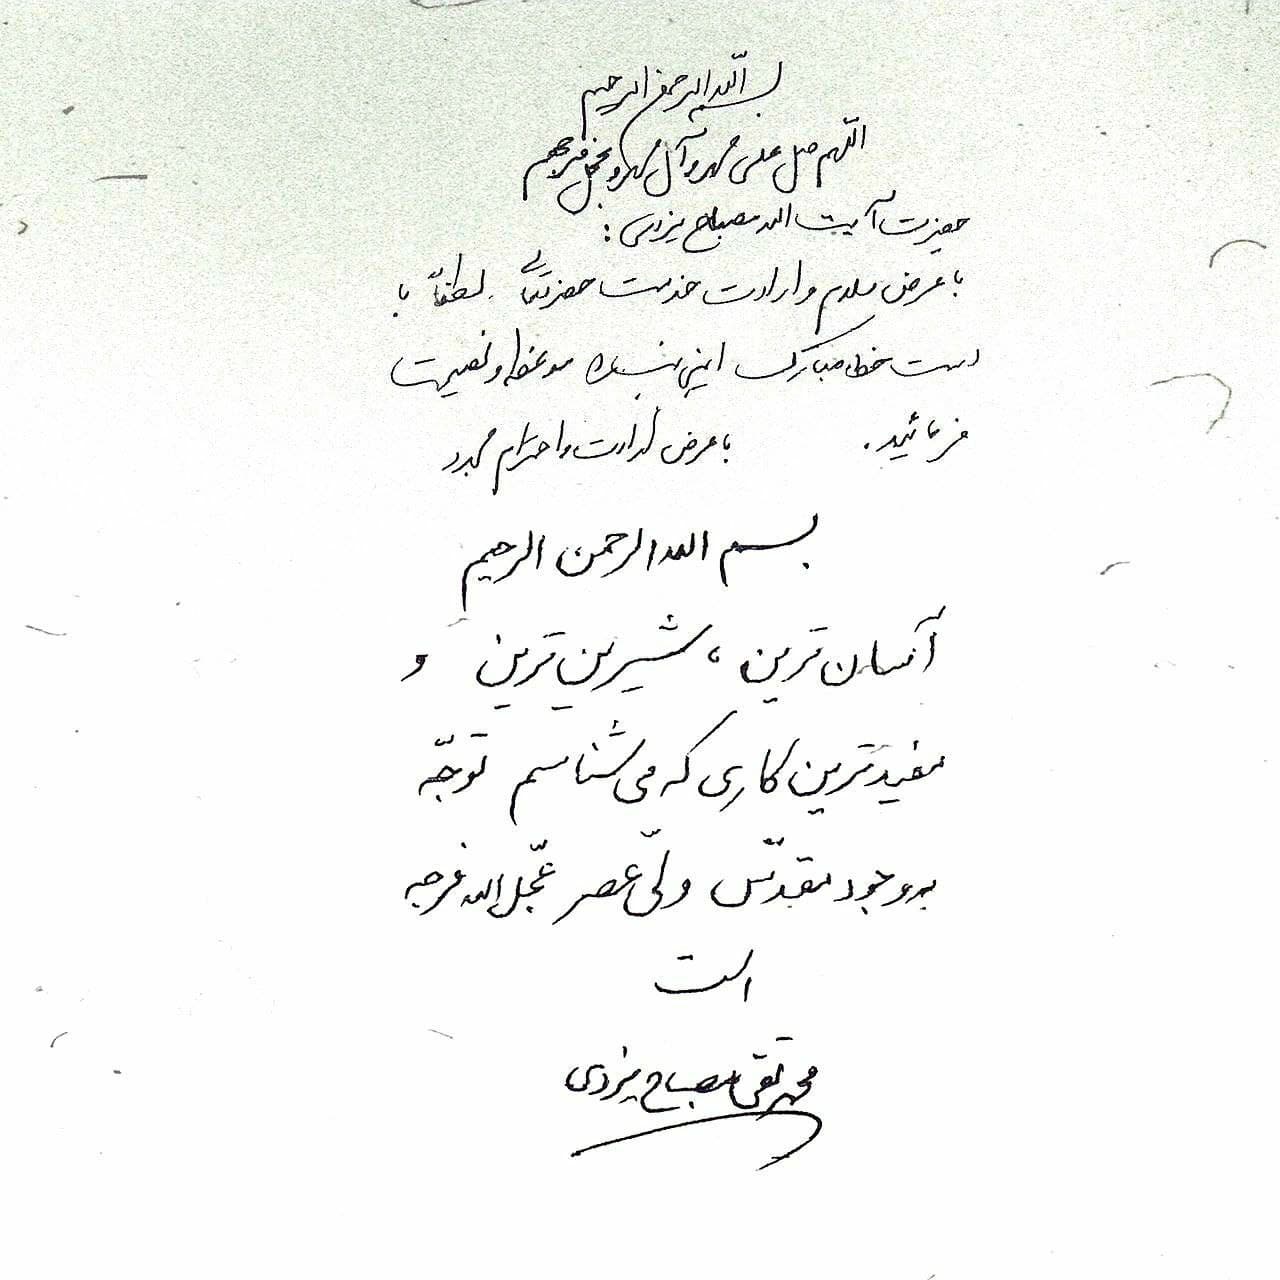 بسم الله الرحمن الرحیم
اللهم صل علی محمد و آل محمد و عجل فرجهم
حضرت آیت الله مصباح یزدی :
با عرض سلام و ارادت خدمت حضرتعالی . لطفاً با
دست خط مبارک این بنده را موعظه و نصیحت
فرمائید . با عرض ارادت و احترام
بسم الله الرحمن الرحیم
آسان ترین ، شیرین ترین و
مفیدترین کاری که می شناسم توجّه
به وجود مقدّس ولیّ عصر عجّل الله فرجه
است
محمد تقی مصباح یزدی